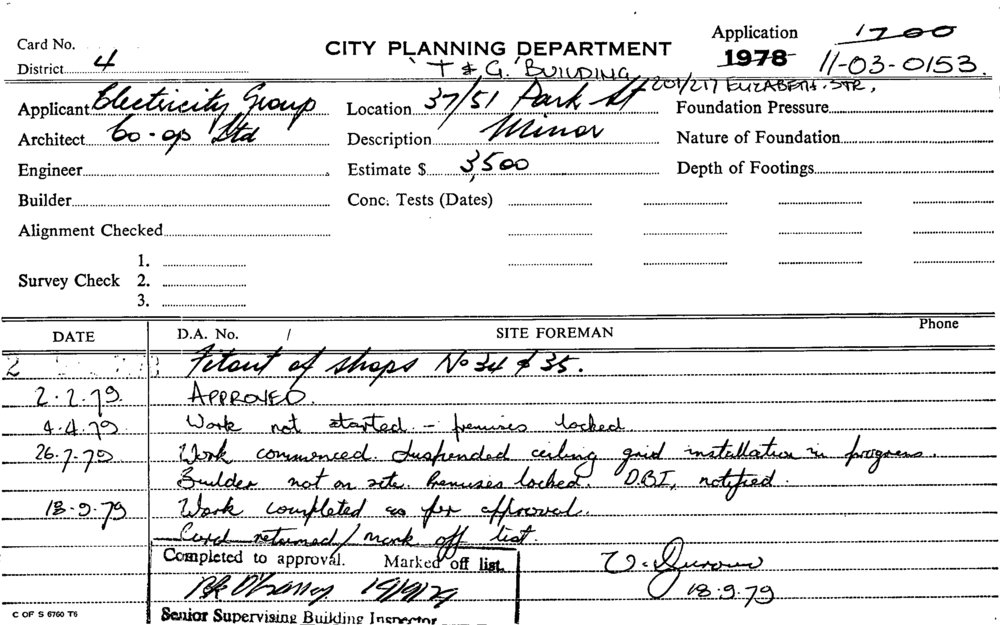 Card No.
CITY PLANNING DEPARTMENT
Application 1700
District 4
"T & G. BUILDING
1978 11-03-0153.
Applicant Electricity Group
Location 37/51 Park St 201/217 ELIZABETH. STR,
Foundation Pressure
Architect Co-op Ltd
Description Minor
Nature of Foundation
Engineer
Estimate $ 3,500
Depth of Footings
Builder
Conc. Tests (Dates)
Alignment Checked
1.
Survey Check 2.
3.
DATE D.A. No. / SITE FOREMAN Phone
2 Fitout of shops No 34 & 35.
2.2.79. APPROVED.
4.4.79 Work not started - premises locked.
26.7.79 Work commenced. Suspended ceiling grid installation in progress.
Builder not on site. Premises locked. D.B.I. notified.
18.9.79 Work completed as per approval.
Card returned / mark off list.
Completed to approval. Marked off list.
19/9/79
18.9.79
C OF S 6760 T6
Senior Supervising Building Inspector